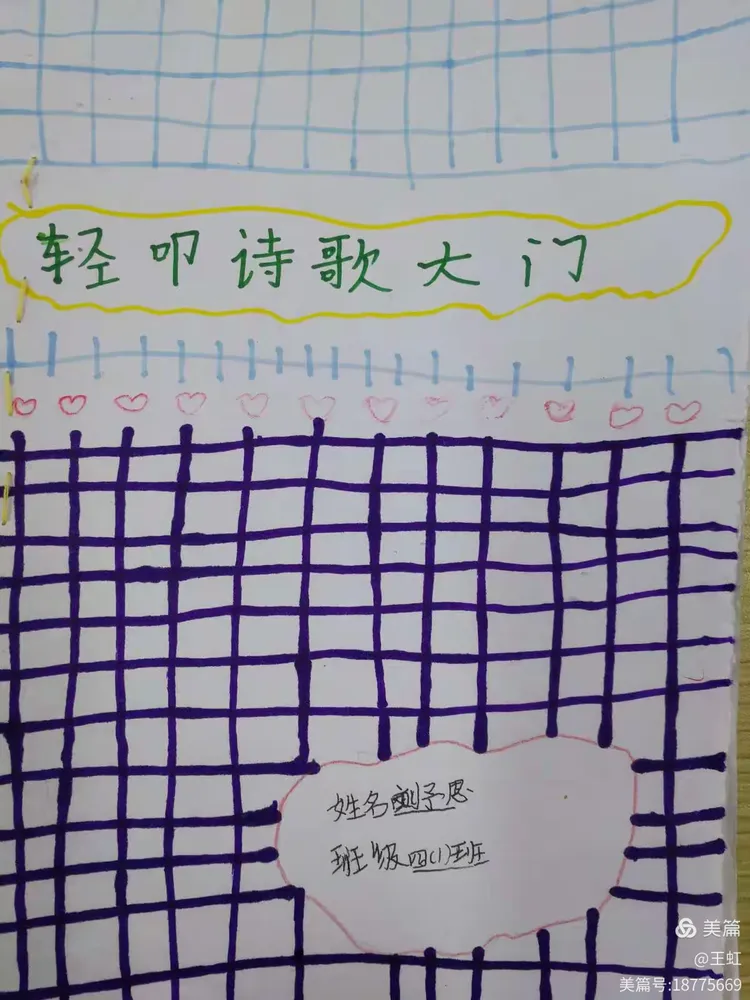 轻叩诗歌大门
姓名刘予恩
班级四(1)班
美篇
@王虹
美篇号:18775669